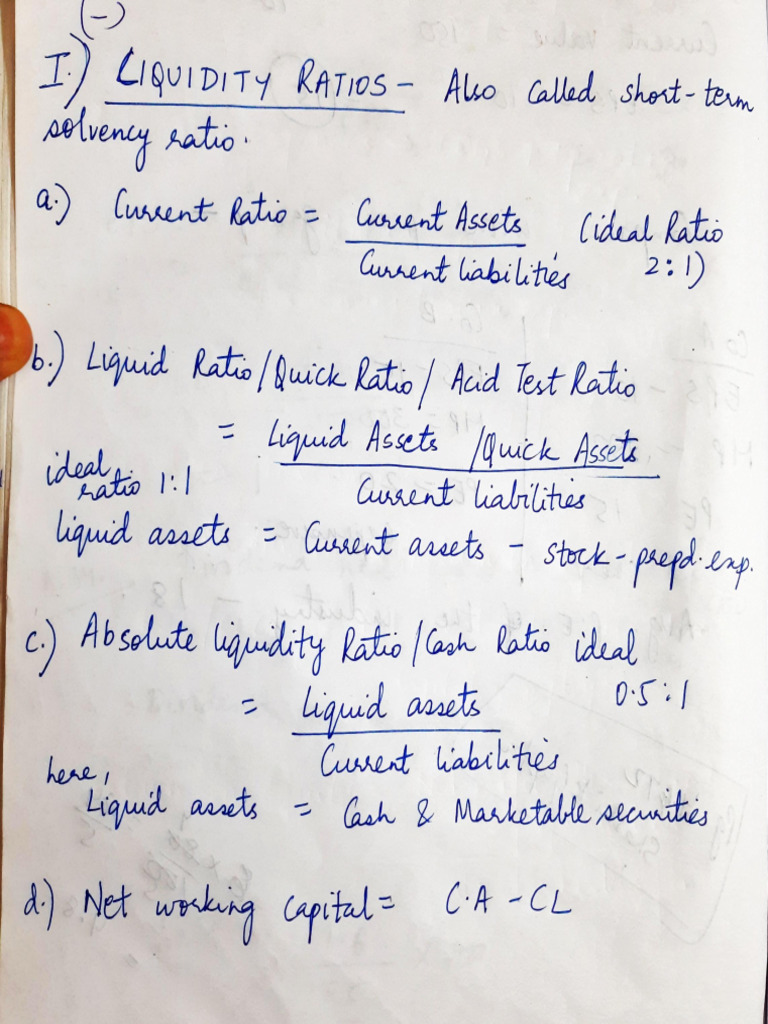 (-)
I.) LIQUIDITY RATIOS - Also called short-term
solvency ratio.
a.) Current Ratio = Current Assets (ideal Ratio
Current liabilities 2:1)
b.) Liquid Ratio/Quick Ratio/ Acid Test Ratio
= Liquid Assets /Quick Assets
Current liabilities
ideal
ratio 1:1
liquid assets = Current assets - stock - prepd. exp.
c.) Absolute liquidity Ratio/Cash Ratio ideal
0.5:1
= Liquid assets
Current liabilities
here,
Liquid assets = Cash & Marketable securities
d.) Net working capital = C.A - CL